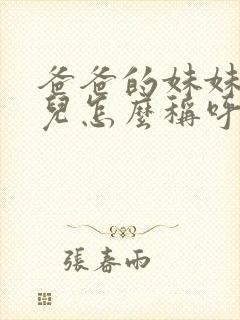 爸爸的妹妹
兒怎麼稱呼
張春雨